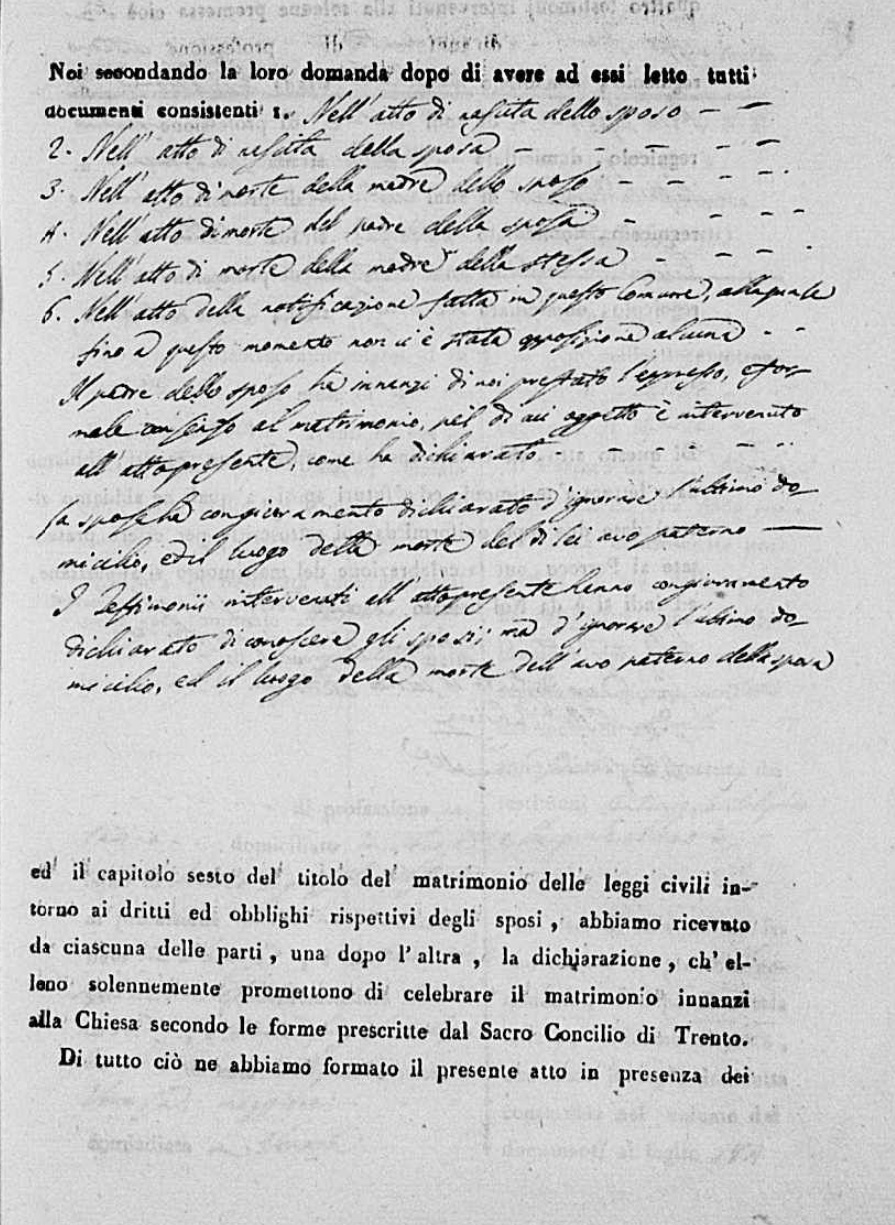 Noi secondando la loro domanda dopo di avere ad essi letto tutti
documenti consistenti 1. Nell'atto di nascita dello sposo — —
2. Nell'atto di nascita della sposa — — — —
3. Nell'atto di morte della madre dello sposo — — — —
4. Nell'atto di morte del padre della sposa — — —
5. Nell'atto di morte della madre della stessa — — —
6. Nell'atto della notificazione fatta in questo Comune, alla quale
fino a questo momento non vi è stata opposizione alcuna — —
Il padre dello sposo ha innanzi di noi prestato l'espresso, e for-
male consenso al matrimonio, pel di cui oggetto è intervenuto
all'atto presente, come ha dichiarato — — — — —
La sposa ha con giuramento dichiarato d'ignorare l'ultimo do-
micilio, ed il luogo della morte del di lei avo paterno —
I Testimonii intervenuti all'atto presente hanno con giuramento
dichiarato di conoscere gli sposi; ma d'ignorare l'ultimo do-
micilio, ed il luogo della morte dell'avo paterno della sposa
ed il capitolo sesto del titolo del matrimonio delle leggi civili in-
torno ai dritti ed obblighi rispettivi degli sposi, abbiamo ricevuto
da ciascuna delle parti, una dopo l'altra, la dichiarazione, ch'el-
leno solennemente promettono di celebrare il matrimonio innanzi
alla Chiesa secondo le forme prescritte dal Sacro Concilio di Trento.
Di tutto ciò ne abbiamo formato il presente atto in presenza dei